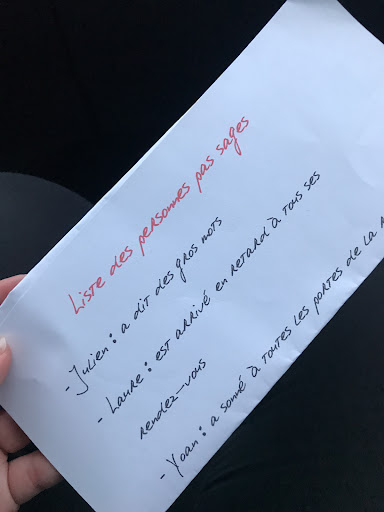 Liste des personnes pas sages
- Julien : a dit des gros mots
- Laure : est arrivé en retard à tous ses
rendez-vous
- Yoan : a sonné à toutes les portes de la